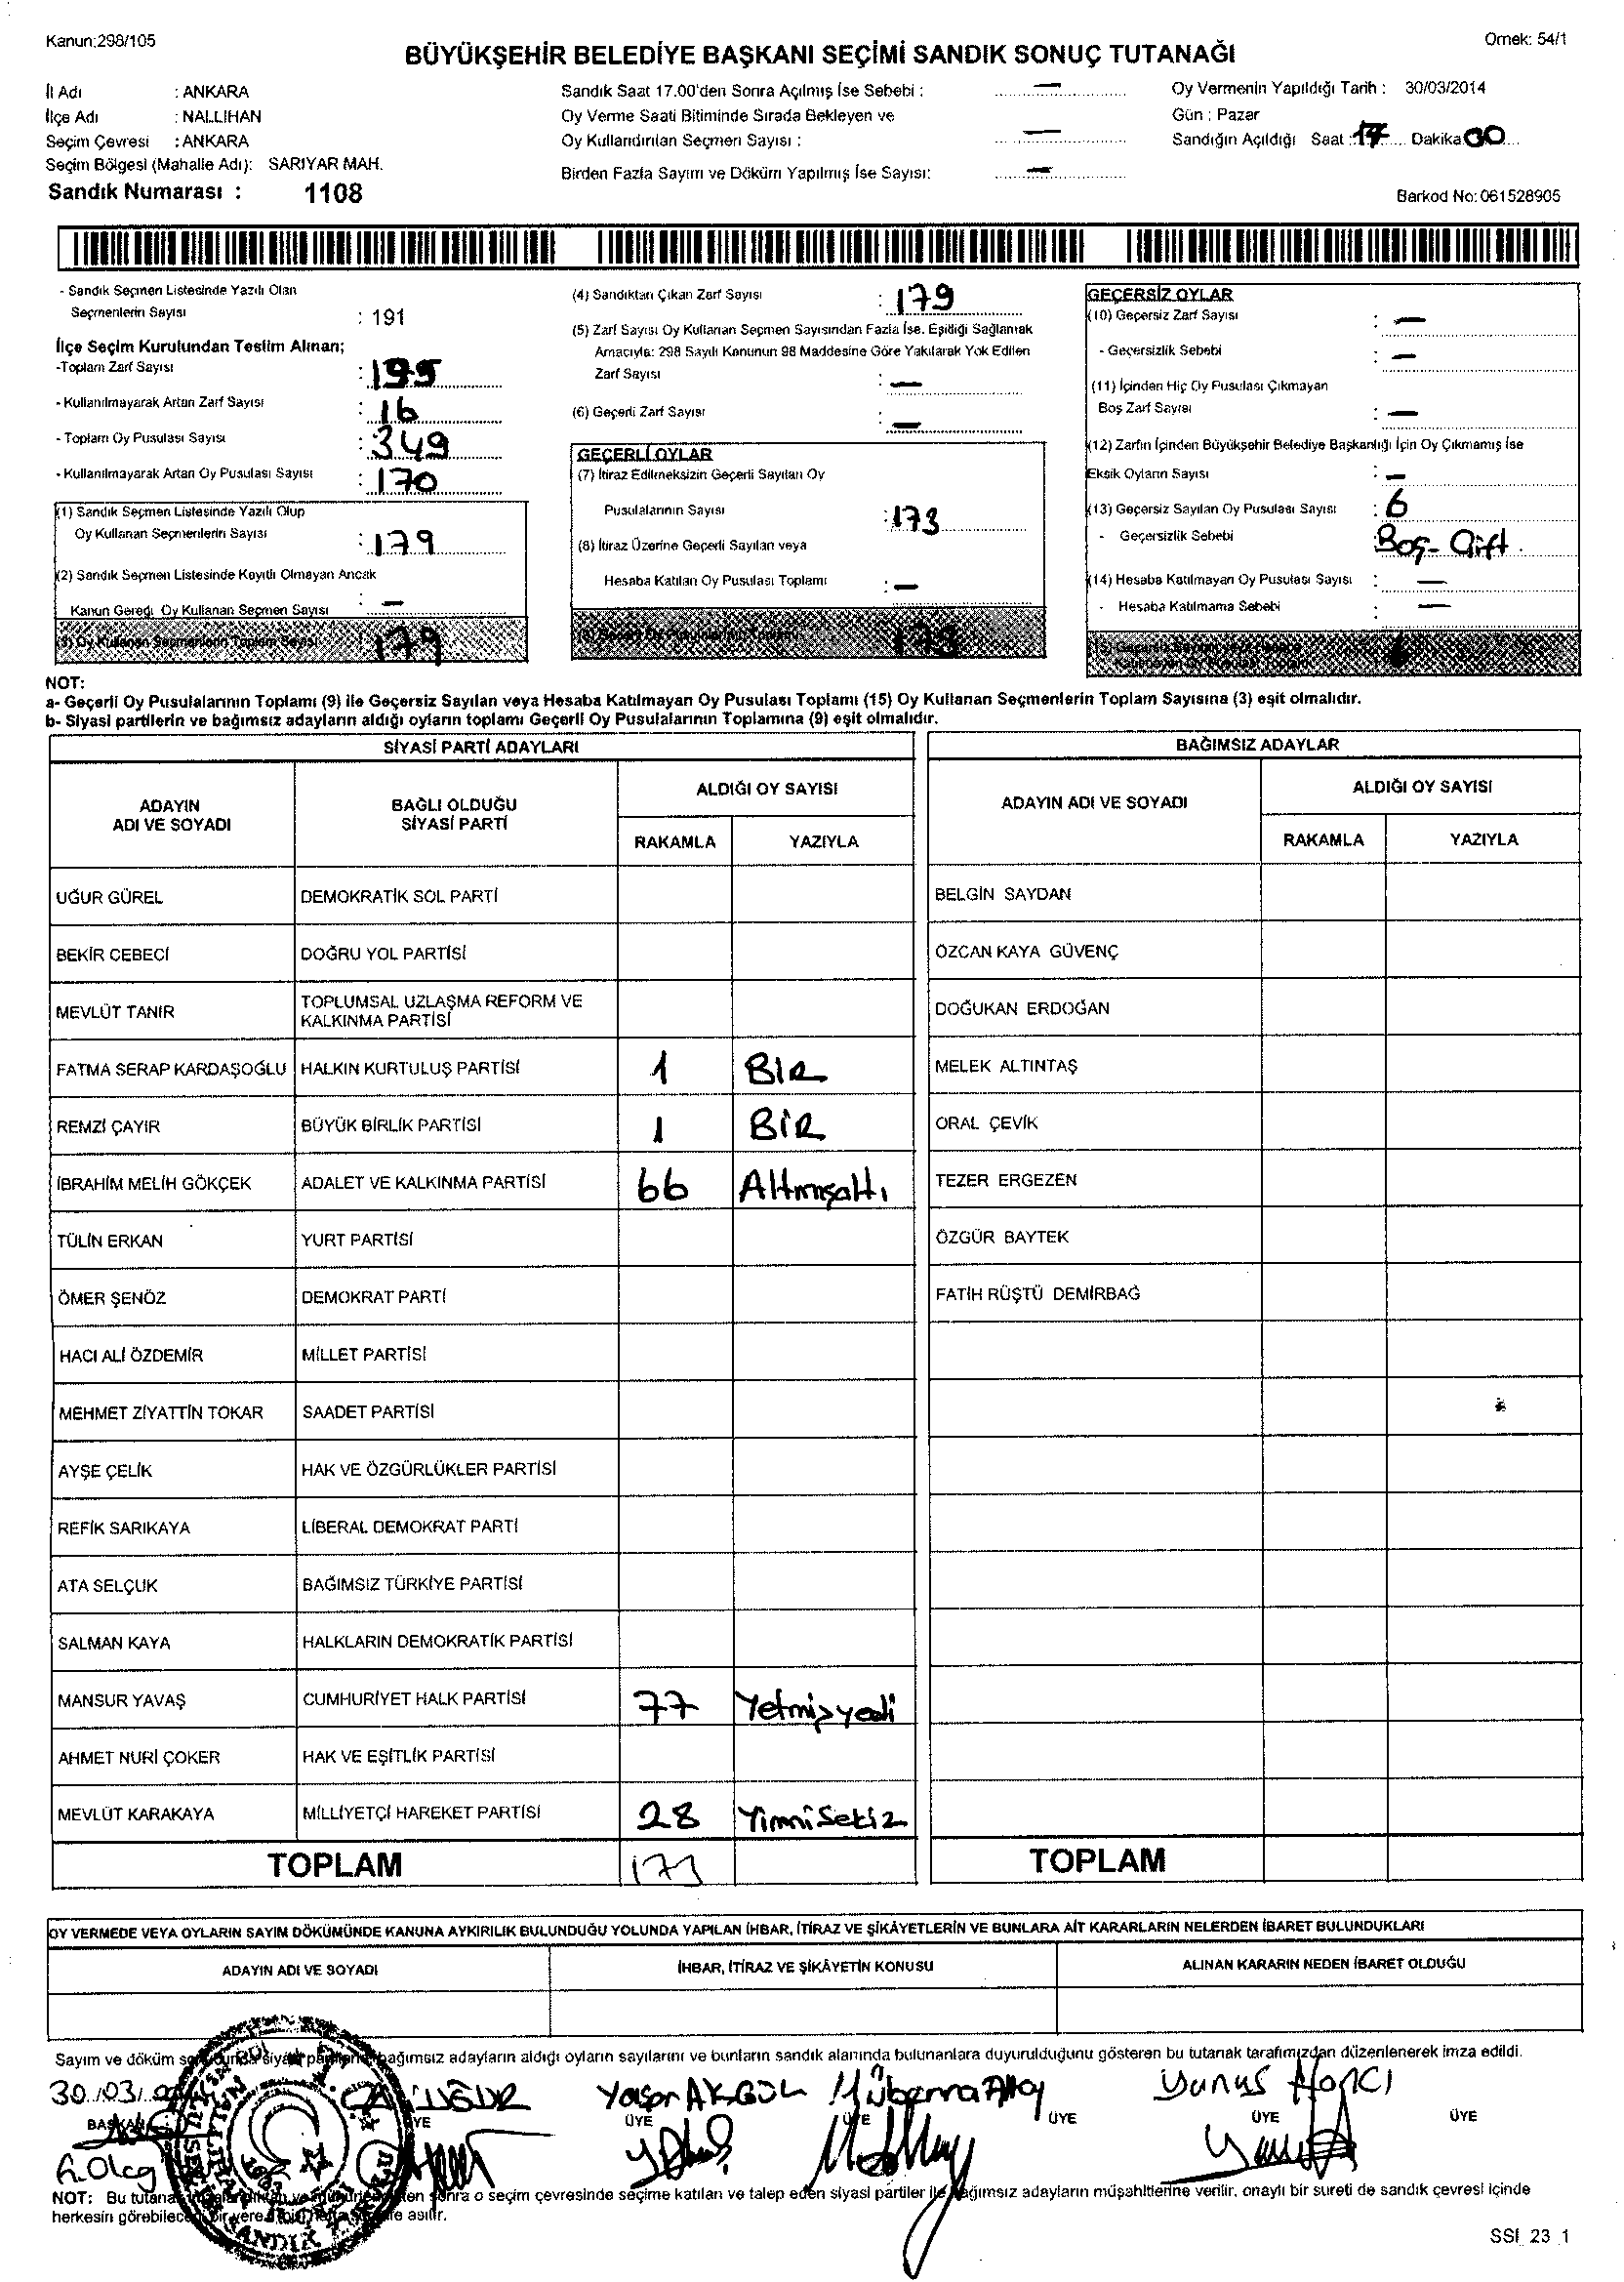 Kanun:298/105
Örnek: 54/1
BÜYÜKŞEHİR BELEDİYE BAŞKANI SEÇİMİ SANDIK SONUÇ TUTANAĞI
İl Adı : ANKARA
İlçe Adı : NALLIHAN
Seçim Çevresi : ANKARA
Seçim Bölgesi (Mahalle Adı): SARIYAR MAH.
Sandık Numarası : 1108
Sandık Saat 17.00'den Sonra Açılmış İse Sebebi : —
Oy Verme Saati Bitiminde Sırada Bekleyen ve
Oy Kullandırılan Seçmen Sayısı : —
Birden Fazla Sayım ve Döküm Yapılmış İse Sayısı: —
Oy Vermenin Yapıldığı Tarih : 30/03/2014
Gün : Pazar
Sandığın Açıldığı Saat : 17 Dakika 00
Barkod No: 061528905
- Sandık Seçmen Listesinde Yazılı Olan
Seçmenlerin Sayısı : 191
İlçe Seçim Kurulundan Teslim Alınan;
-Toplam Zarf Sayısı : 195
- Kullanılmayarak Artan Zarf Sayısı : 16
- Toplam Oy Pusulası Sayısı : 349
- Kullanılmayarak Artan Oy Pusulası Sayısı : 170
(1) Sandık Seçmen Listesinde Yazılı Olup
Oy Kullanan Seçmenlerin Sayısı : 179
(2) Sandık Seçmen Listesinde Kayıtlı Olmayan Ancak
Kanun Gereği Oy Kullanan Seçmen Sayısı : —
(3) Oy Kullanan Seçmenlerin Toplam Sayısı 179
(4) Sandıktan Çıkan Zarf Sayısı : 179
(5) Zarf Sayısı Oy Kullanan Seçmen Sayısından Fazla İse, Eşitliği Sağlamak
Amacıyla; 298 Sayılı Kanunun 98 Maddesine Göre Yakılarak Yok Edilen
Zarf Sayısı : —
(6) Geçerli Zarf Sayısı : —
GEÇERLİ OYLAR
(7) İtiraz Edilmeksizin Geçerli Sayılan Oy
Pusulalarının Sayısı : 173
(8) İtiraz Üzerine Geçerli Sayılan veya
Hesaba Katılan Oy Pusulası Toplamı : —
(9) Geçerli Oy Pusulalarının Toplamı 173
GEÇERSİZ OYLAR
(10) Geçersiz Zarf Sayısı : —
- Geçersizlik Sebebi : —
(11) İçinden Hiç Oy Pusulası Çıkmayan
Boş Zarf Sayısı : —
(12) Zarfın İçinden Büyükşehir Belediye Başkanlığı İçin Oy Çıkmamış İse
Eksik Oyların Sayısı : —
(13) Geçersiz Sayılan Oy Pusulası Sayısı : 6
- Geçersizlik Sebebi : Boş- Çift
(14) Hesaba Katılmayan Oy Pusulası Sayısı : —
- Hesaba Katılmama Sebebi : —
(15) Geçersiz Sayılan veya Hesaba
Katılmayan Oy Pusulası Toplamı 6
NOT:
a- Geçerli Oy Pusulalarının Toplamı (9) ile Geçersiz Sayılan veya Hesaba Katılmayan Oy Pusulası Toplamı (15) Oy Kullanan Seçmenlerin Toplam Sayısına (3) eşit olmalıdır.
b- Siyasi partilerin ve bağımsız adayların aldığı oyların toplamı Geçerli Oy Pusulalarının Toplamına (9) eşit olmalıdır.
SİYASİ PARTİ ADAYLARI
ADAYIN ADI VE SOYADI BAĞLI OLDUĞU SİYASİ PARTİ ALDIĞI OY SAYISI
RAKAMLA YAZIYLA
UĞUR GÜREL DEMOKRATİK SOL PARTİ
BEKİR CEBECİ DOĞRU YOL PARTİSİ
MEVLÜT TANIR TOPLUMSAL UZLAŞMA REFORM VE KALKINMA PARTİSİ
FATMA SERAP KARDAŞOĞLU HALKIN KURTULUŞ PARTİSİ 1 BİR
REMZİ ÇAYIR BÜYÜK BİRLİK PARTİSİ 1 BİR
İBRAHİM MELİH GÖKÇEK ADALET VE KALKINMA PARTİSİ 66 Altmışaltı
TÜLİN ERKAN YURT PARTİSİ
ÖMER ŞENÖZ DEMOKRAT PARTİ
HACI ALİ ÖZDEMİR MİLLET PARTİSİ
MEHMET ZİYATTİN TOKAR SAADET PARTİSİ
AYŞE ÇELİK HAK VE ÖZGÜRLÜKLER PARTİSİ
REFİK SARIKAYA LİBERAL DEMOKRAT PARTİ
ATA SELÇUK BAĞIMSIZ TÜRKİYE PARTİSİ
SALMAN KAYA HALKLARIN DEMOKRATİK PARTİSİ
MANSUR YAVAŞ CUMHURİYET HALK PARTİSİ 77 Yetmişyedi
AHMET NURİ ÇOKER HAK VE EŞİTLİK PARTİSİ
MEVLÜT KARAKAYA MİLLİYETÇİ HAREKET PARTİSİ 28 Yirmisekiz
TOPLAM 173
BAĞIMSIZ ADAYLAR
ADAYIN ADI VE SOYADI ALDIĞI OY SAYISI
RAKAMLA YAZIYLA
BELGİN SAYDAN
ÖZCAN KAYA GÜVENÇ
DOĞUKAN ERDOĞAN
MELEK ALTINTAŞ
ORAL ÇEVİK
TEZER ERGEZEN
ÖZGÜR BAYTEK
FATİH RÜŞTÜ DEMİRBAĞ
TOPLAM
OY VERMEDE VEYA OYLARIN SAYIM DÖKÜMÜNDE KANUNA AYKIRILIK BULUNDUĞU YOLUNDA YAPILAN İHBAR, İTİRAZ VE ŞİKÂYETLERİN VE BUNLARA AİT KARARLARIN NELERDEN İBARET BULUNDUKLARI
ADAYIN ADI VE SOYADI İHBAR, İTİRAZ VE ŞİKÂYETİN KONUSU ALINAN KARARIN NEDEN İBARET OLDUĞU
Sayım ve döküm bağımsız adayların aldığı oyların sayılarını ve bunların sandık alanında bulunanlara duyurulduğunu gösteren bu tutanak tarafımızdan düzenlenerek imza edildi.
30.03 Yaşar AKGÜL Yunus
BAŞKAN ÜYE ÜYE ÜYE ÜYE ÜYE ÜYE
NOT: Bu tutanak sonra o seçim çevresinde seçime katılan ve talep eden siyasi partiler ile bağımsız adayların müşahitlerine verilir, onaylı bir sureti de sandık çevresi içinde
herkesin görebileceği bir yere asılır.
SSİ_23_1